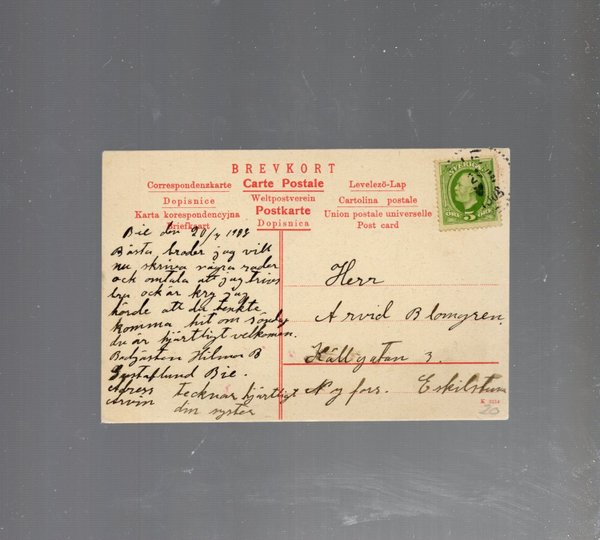 BREVKORT
Correspondenzkarte Carte Postale Levelező-Lap
Dopisnice Weltpostverein Cartolina postale
Karta korespondencyjna Postkarte Union postale universelle
Briefkaart Dopisnica Post card
SVERIGE
ÖRE 5 ÖRE
Bie den 20/7
Bästa broder jag vill
nu skriva några rader
och omtala att jag trives
bra och är kry jag
hörde att du tenkte
komma hit om söndag
du är hjärtligt velkomen.
Hilma B
Gustaflund Bie.
Adress
tecknar hjärtligt
din syster
Herr
Arvid Blomgren.
Källgatan 3.
Nyfors. Eskilstuna
K
20